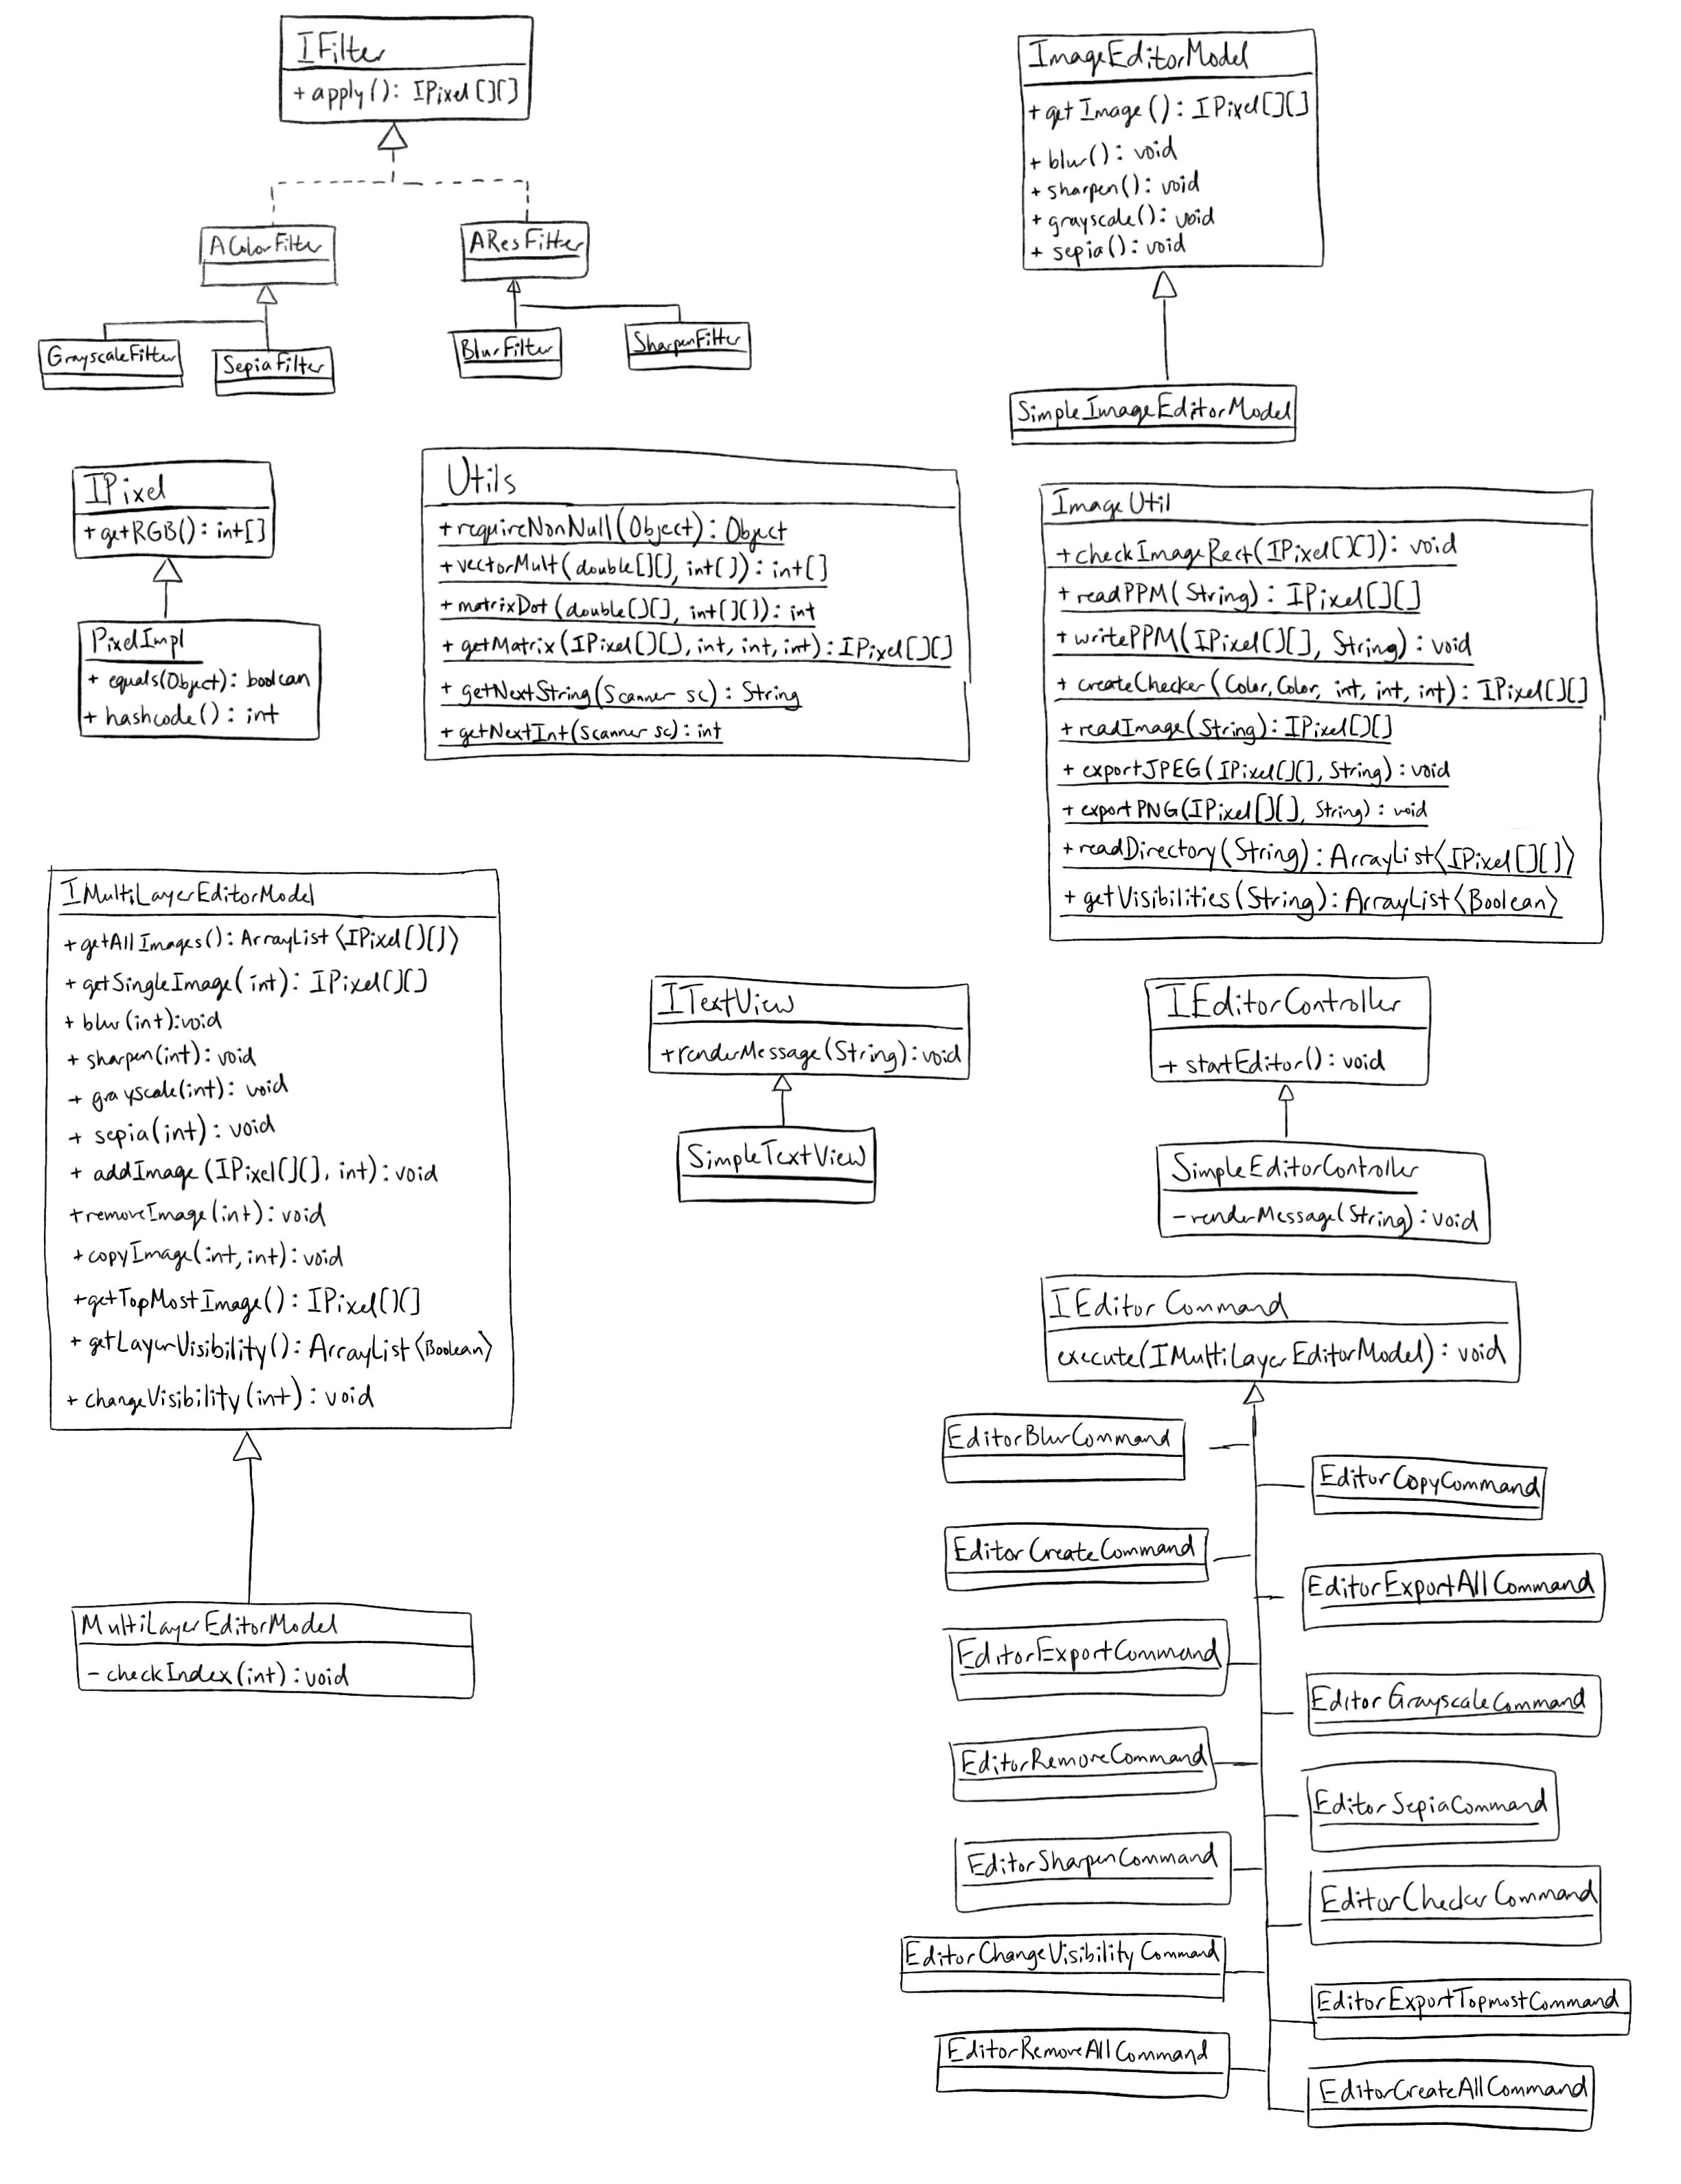 IFilter
+ apply(): IPixel[][]
AColorFilter
AResFilter
GrayscaleFilter
SepiaFilter
BlurFilter
SharpenFilter
ImageEditorModel
+ getImage(): IPixel[][]
+ blur(): void
+ sharpen(): void
+ grayscale(): void
+ sepia(): void
SimpleImageEditorModel
IPixel
+ getRGB(): int[]
PixelImpl
+ equals(Object): boolean
+ hashcode(): int
Utils
+ requireNonNull(Object): Object
+ vectorMult(double[][], int[]): int[]
+ matrixDot(double[][], int[][]): int
+ getMatrix(IPixel[][], int, int, int): IPixel[][]
+ getNextString(Scanner sc): String
+ getNextInt(Scanner sc): int
ImageUtil
+ checkImageRect(IPixel[][]): void
+ readPPM(String): IPixel[][]
+ writePPM(IPixel[][], String): void
+ createChecker(Color, Color, int, int, int): IPixel[][]
+ readImage(String): IPixel[][]
+ exportJPEG(IPixel[][], String): void
+ exportPNG(IPixel[][], String): void
+ readDirectory(String): ArrayList<IPixel[][]>
+ getVisibilities(String): ArrayList<Boolean>
IMultiLayerEditorModel
+ getAllImages(): ArrayList<IPixel[][]>
+ getSingleImage(int): IPixel[][]
+ blur(int): void
+ sharpen(int): void
+ grayscale(int): void
+ sepia(int): void
+ addImage(IPixel[][], int): void
+ removeImage(int): void
+ copyImage(int, int): void
+ getTopMostImage(): IPixel[][]
+ getLayerVisibility(): ArrayList<Boolean>
+ changeVisibility(int): void
MultiLayerEditorModel
- checkIndex(int): void
ITextView
+ renderMessage(String): void
SimpleTextView
IEditorController
+ startEditor(): void
SimpleEditorController
- renderMessage(String): void
IEditorCommand
execute(IMultiLayerEditorModel): void
EditorBlurCommand
EditorCopyCommand
EditorCreateCommand
EditorExportAllCommand
EditorExportCommand
EditorGrayscaleCommand
EditorRemoveCommand
EditorSepiaCommand
EditorSharpenCommand
EditorCheckerCommand
EditorChangeVisibilityCommand
EditorExportTopmostCommand
EditorRemoveAllCommand
EditorCreateAllCommand